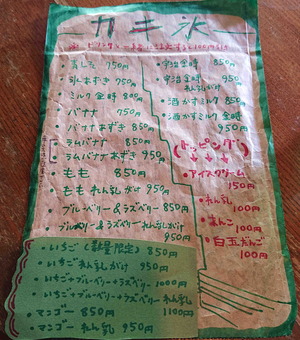 カキ氷
みぞれ 750円
氷あずき 950円
ミルク金時 800円
バナナ 750円
バナナあずき 850円
ラムバナナ 850円
ラムバナナあずき 950円
もも 850円
ももれん乳がけ 950円
ブルーベリー&ラズベリー 850円
ブルーベリー&ラズベリーれん乳がけ
950円
いちご (数量限定) 850円
いちごれん乳がけ 950円
いちご+ブルーベリー+ラズベリー 1000円
いちご+ブルーベリー+ラズベリーれん乳
1100円
マンゴー 850円
マンゴーれん乳 950円
宇治金時 850円
宇治金時 950円
れん乳がけ
酒かすミルク 850円
酒かすミルク金時
950円
(トッピング)
アイスクリーム
150円
れん乳
100円
あんこ
100円
白玉だんご
100円